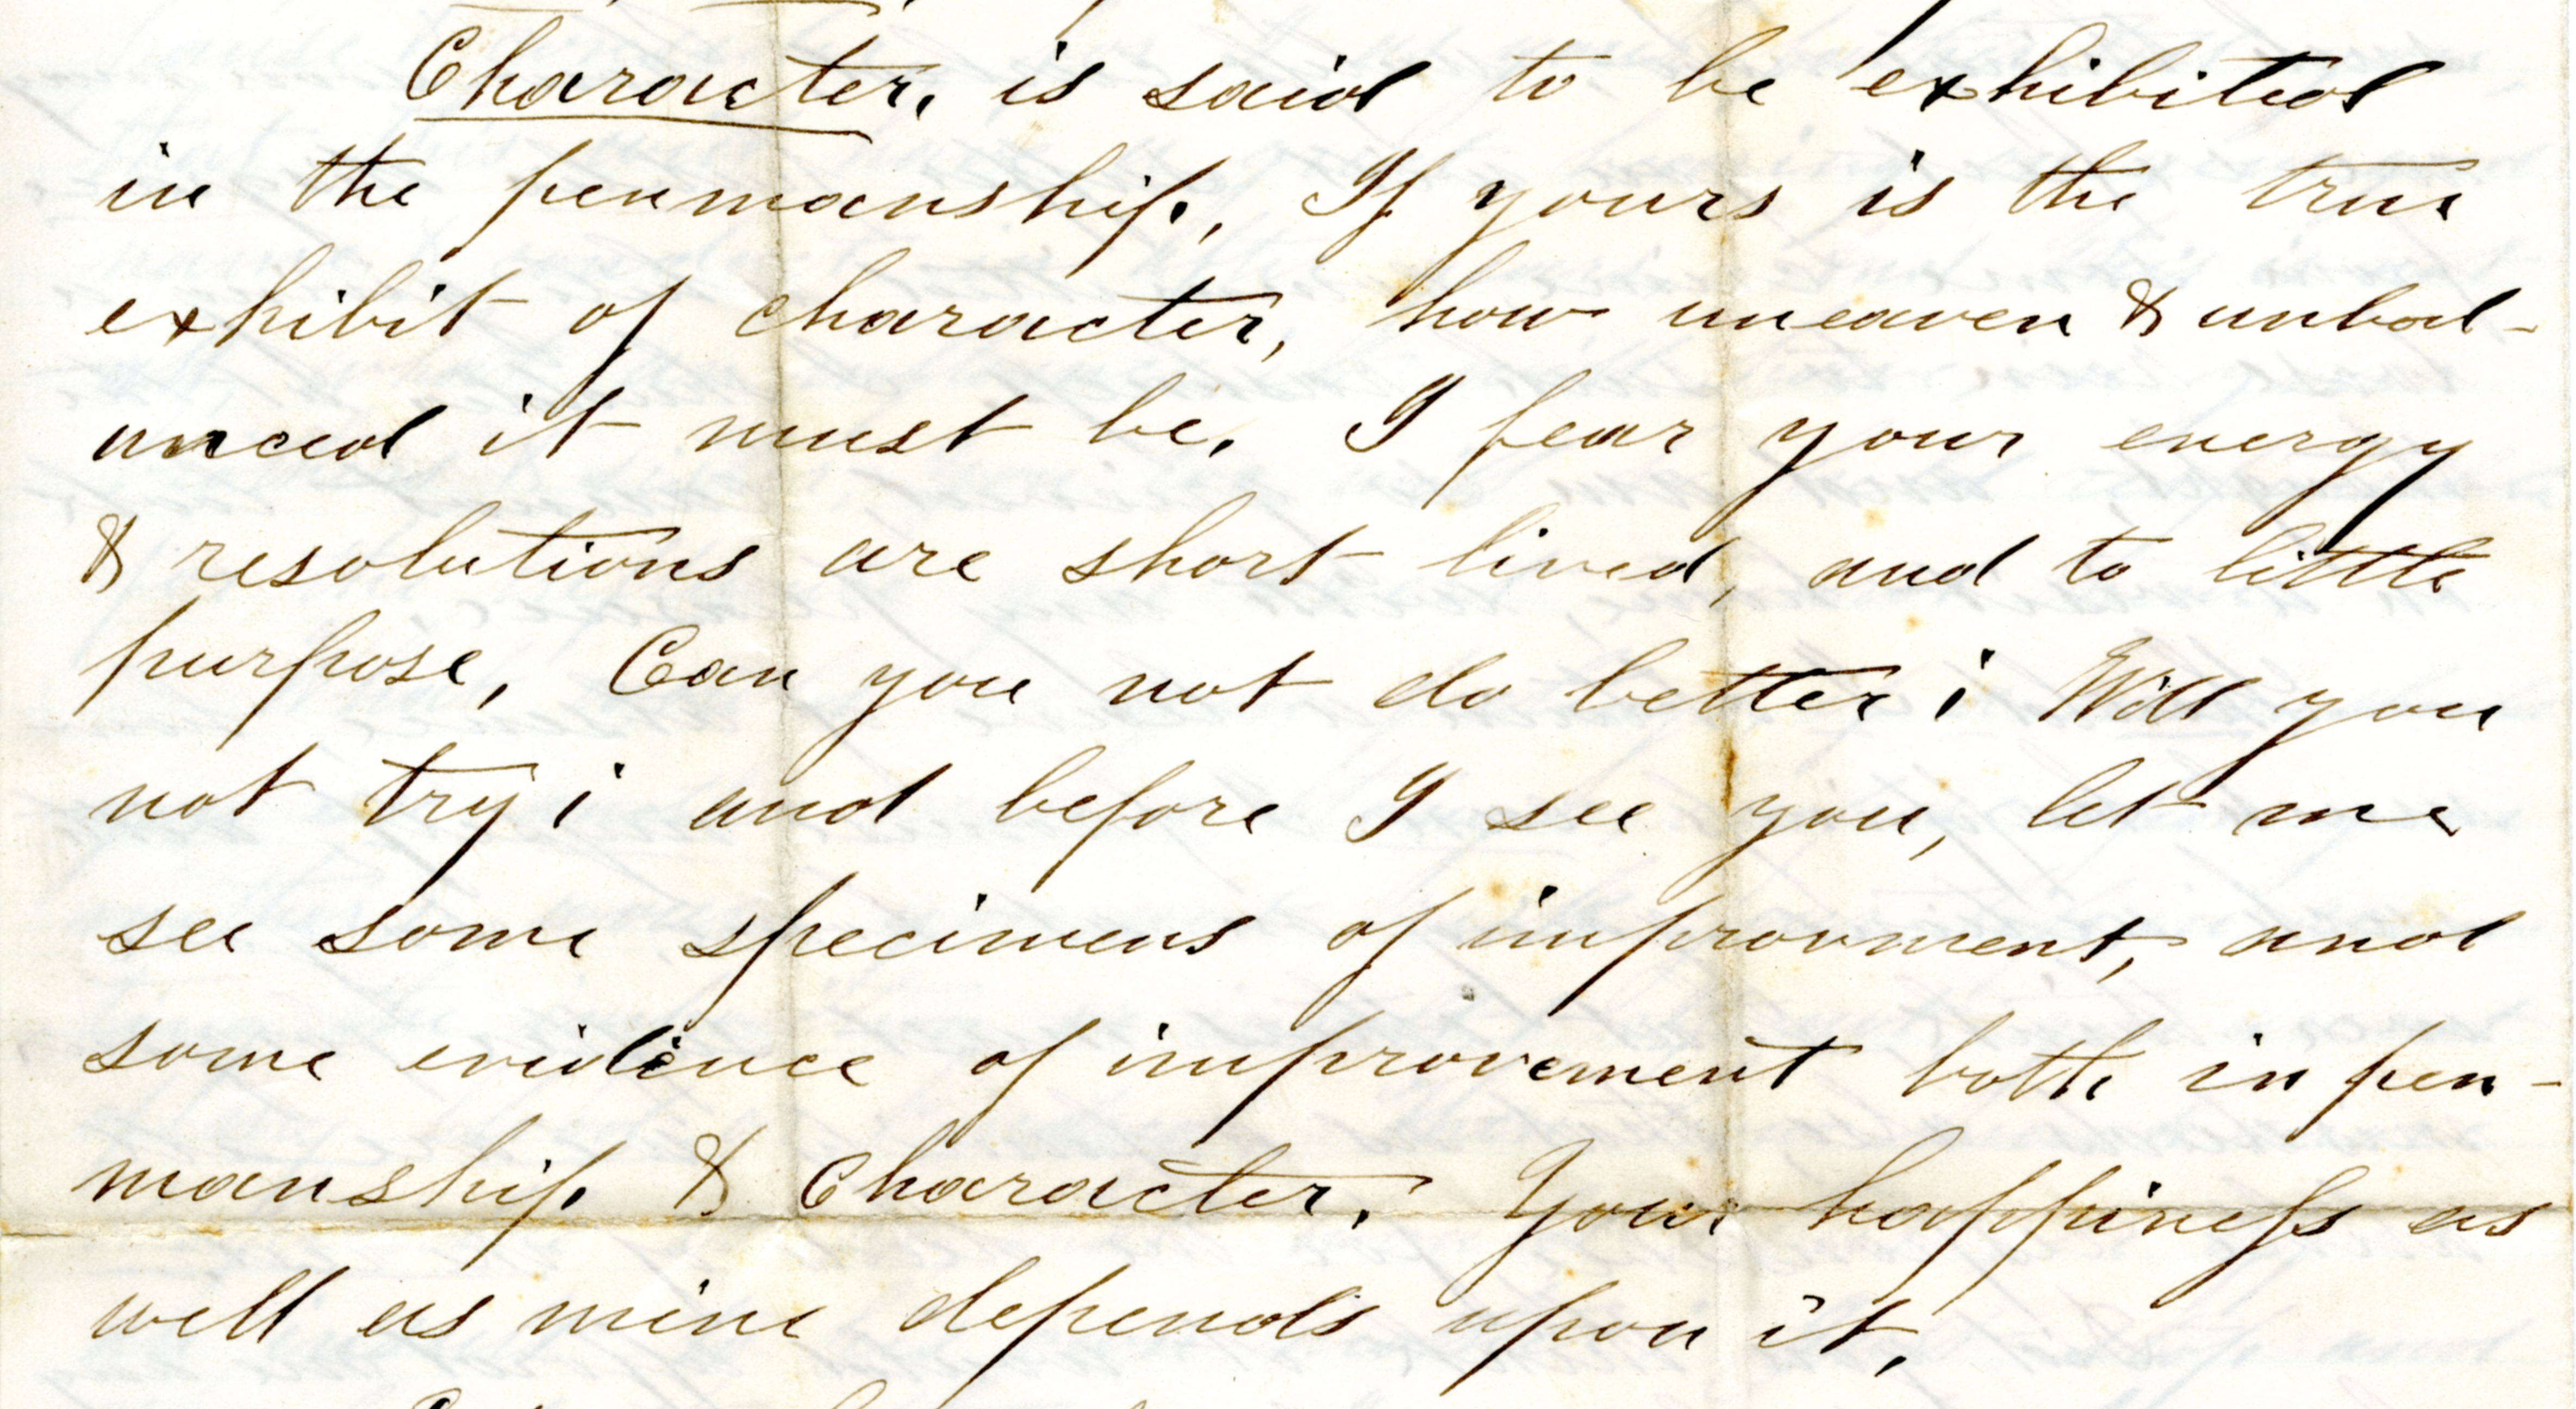 Character, is said to be exhibited
in the penmanship, If yours is the true
exhibit of character, how uneaven & unbal-
anced it must be. I fear your energy
& resolutions are short lived, and to little
purpose, Can you not do better; Will you
not try; and before I see you, let me
see some specimens of improvment, and
some evidence of improvement both in pen-
manship & Character. Your happiness as
well as mine depends upon it,